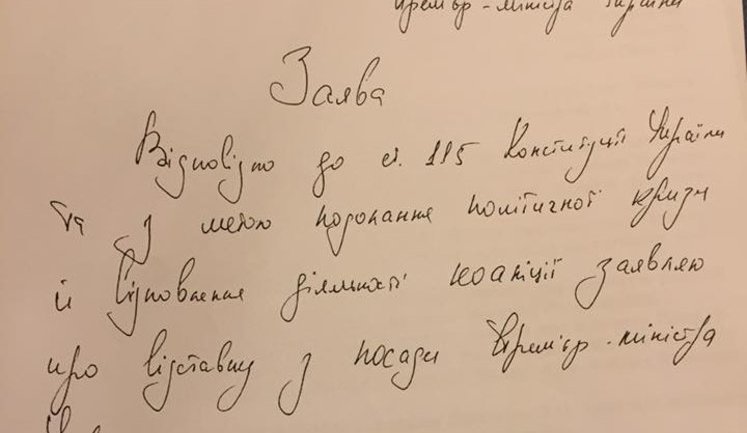 Прем'єр-міністра України
Заява
Відповідно до ст. 115 Конституції України
та з метою подолання політичної кризи
й відновлення діяльності коаліції заявляю
про відставку з посади Прем'єр-міністра